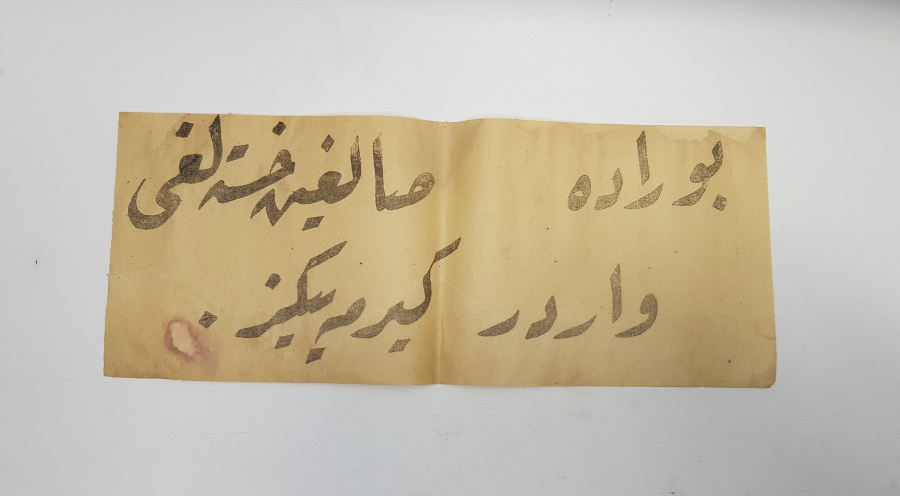 بوراده صالغین خسته‌لغی
واردر گیرمه‌ییكز .